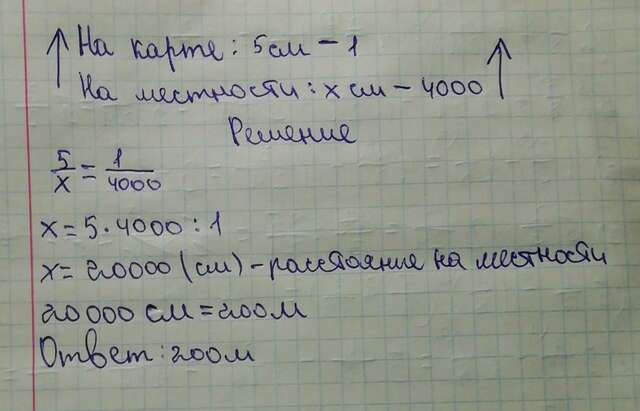 На карте: 5см – 1
На местности: x см – 4000
Решение
5/x = 1/4000
x = 5 · 4000 : 1
x = 20000 (см) – расстояние на местности
20 000 см = 200м
Ответ: 200м